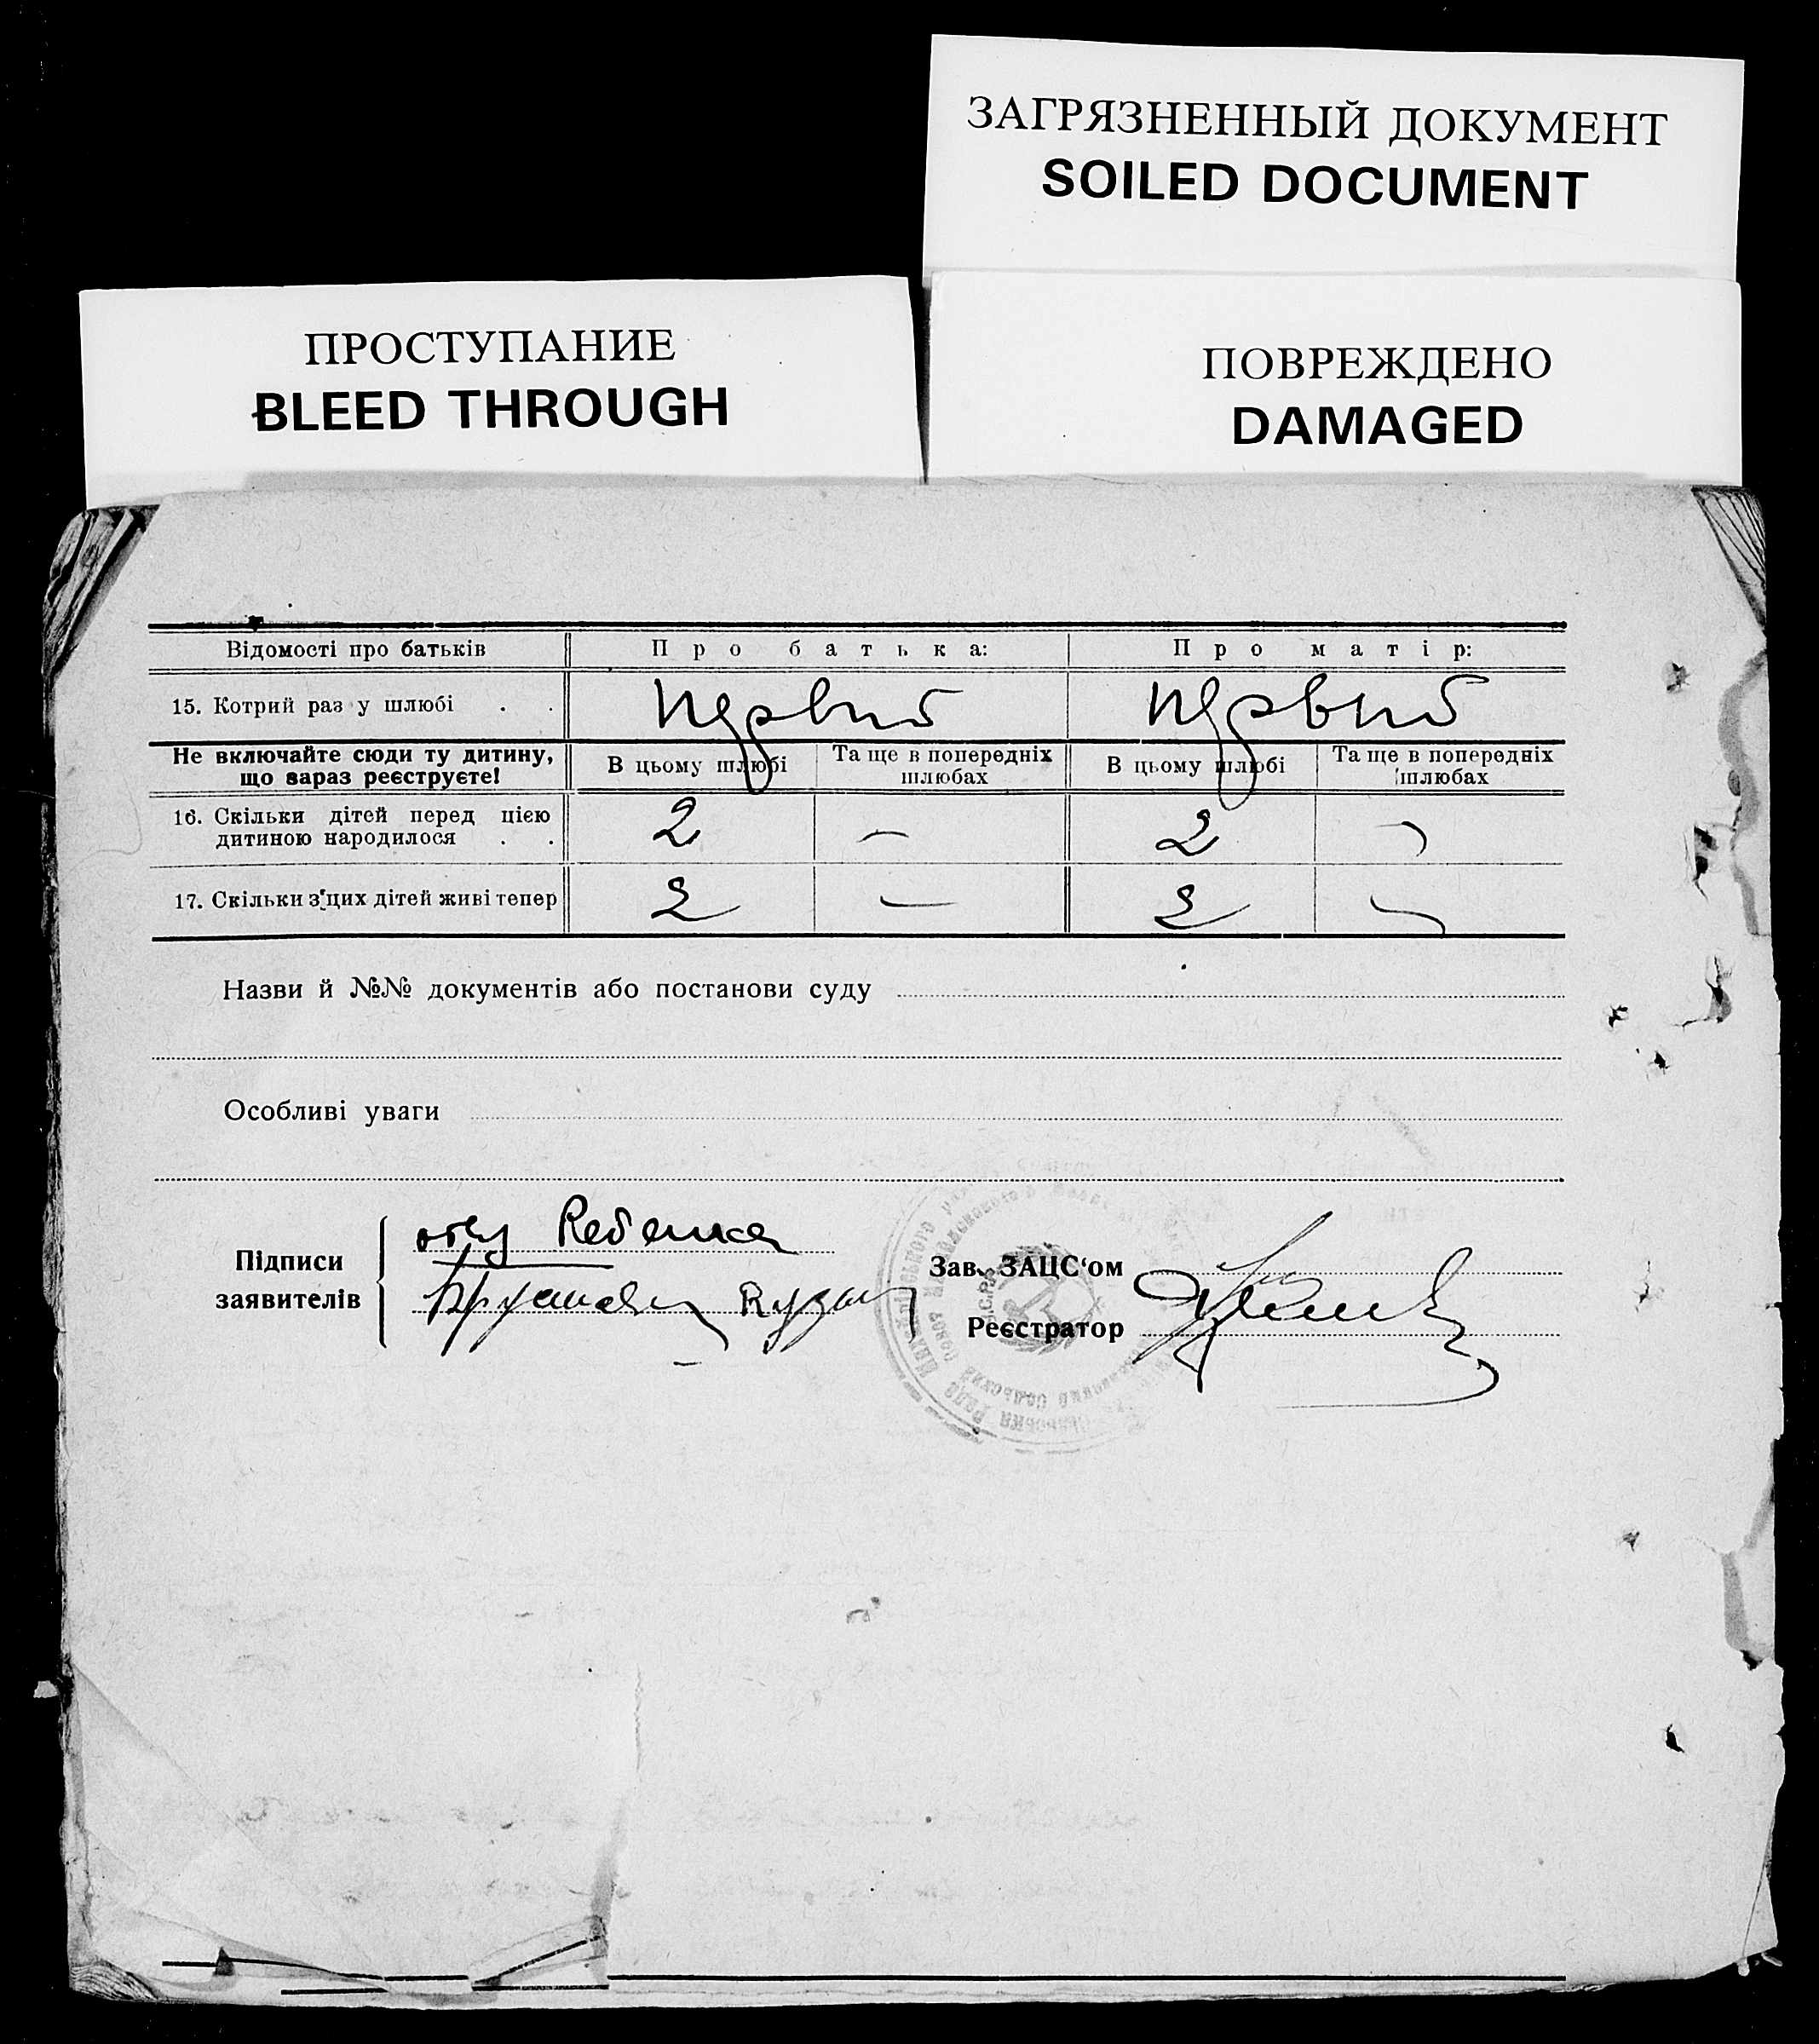 ЗАГРЯЗНЕННЫЙ ДОКУМЕНТ
SOILED DOCUMENT
ПРОСТУПАНИЕ
BLEED THROUGH
ПОВРЕЖДЕНО
DAMAGED
Відомості про батьків Про батька: Про матір:
15. Котрий раз у шлюбі . . первий первий
Не включайте сюди ту дитину, що зараз реєструєте! В цьому шлюбі Та ще в попередніх шлюбах В цьому шлюбі Та ще в попередніх шлюбах
16. Скільки дітей перед цією дитиною народилося . . 2 — 2 —
17. Скільки з'цих дітей живі тепер 2 — 2 —
Назви й №№ документів або постанови суду
Особливі уваги
Підписи заявителів
отец Ребенка
Зав. ЗАЦС'ом
Реєстратор